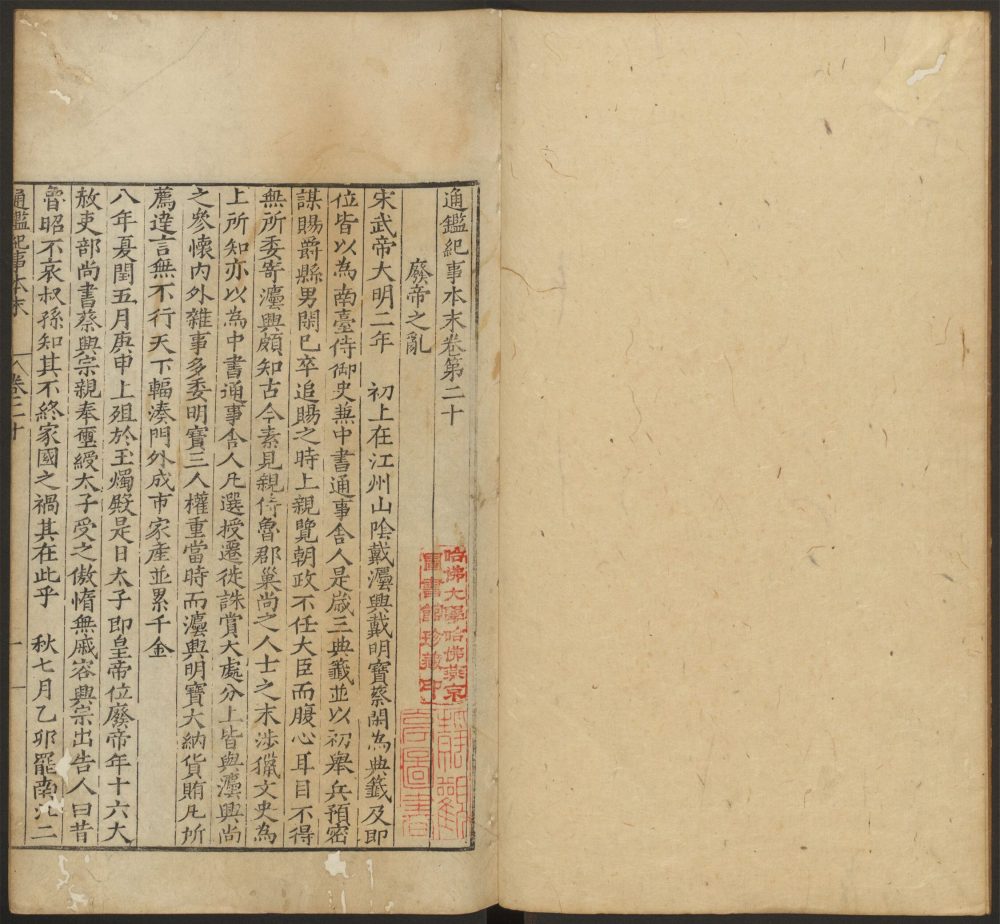 通鑑紀事本末卷第二十
廢帝之亂
宋武帝大明二年　初上在江州山陰戴灋興戴明寶蔡閑為典籤及即
位皆以為南臺侍御史兼中書通事舍人是歲三典籤並以初舉兵預密
謀賜爵縣男閑已卒追賜之時上親覽朝政不任大臣而腹心耳目不得
無所委寄灋興頗知古今素見親待魯郡巢尚之人士之末涉獵文史為
上所知亦以為中書通事舍人凡選授遷徙誅賞大處分上皆與灋興尚
之參懷内外雜事多委明寶三人權重當時而灋興明寶大納貨賄凡所
薦達言無不行天下輻湊門外成市家產並累千金
八年夏閏五月庚申上殂於玉燭殿是日太子即皇帝位廢帝年十六大
赦吏部尚書蔡興宗親奉璽綬太子受之傲惰無戚容興宗出告人曰昔
魯昭不哀叔孫知其不終家國之禍其在此乎　秋七月乙卯罷南北二
通鑑紀事本末　卷二十　一
哈佛大學哈佛燕京
圖書館珍藏印